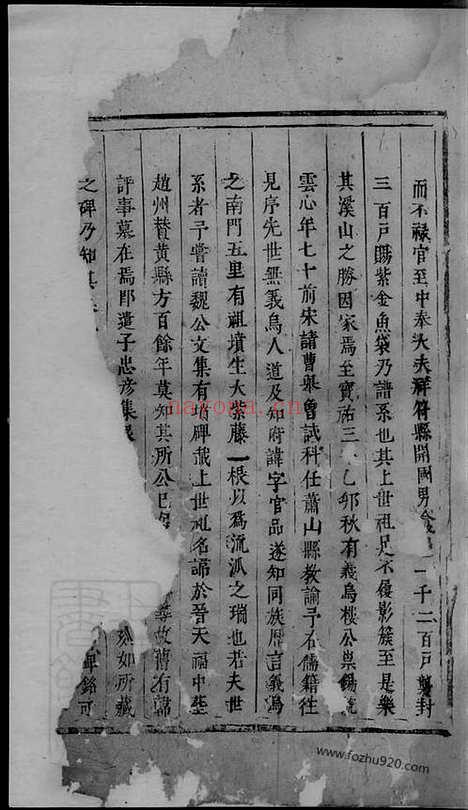 而不祿官至中奉大夫祥符縣開國男食一千二百戶
三百戶賜紫金魚袋乃譜系也其上世祖足不履影簇至是樂
其溪山之勝因家焉至寶祐三乙卯秋有義烏樓公
雲心年七十前宋諸曹舉魯試科任蕭山縣教諭予右儒籍往
見序先世無義烏人道及知府諱字官品遂知同族曆言義烏
之南門五里有祖墳生大紫藤一根以爲流派之瑞也若夫世
系者予嘗讀魏公文集有墳碑載上世祖名諦於晉天福中
趙州贊黃縣方百餘年莫知其所公已 故舊有
評事墓在焉即遣子忠彥集 如所藏
之碑乃知其 碑銘可
nayona.cn
www.fozhu920.com